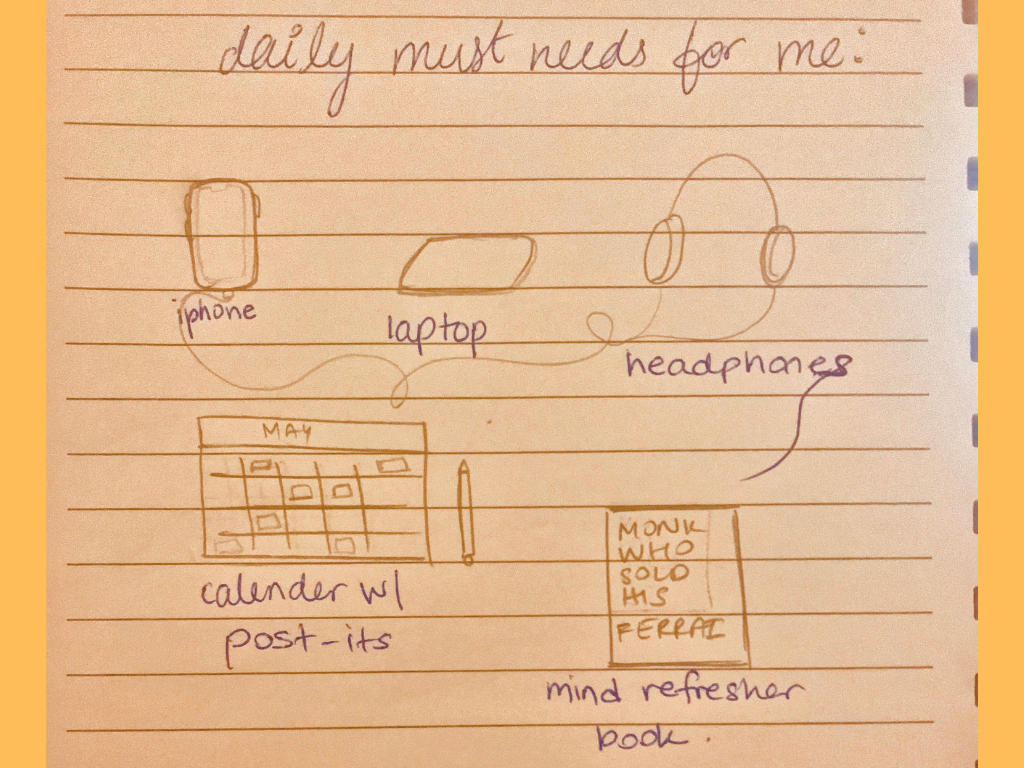 daily must needs for me:
iphone
laptop
headphones
MAY
calender w/
post-its
MONK
WHO
SOLD
HIS
FERRAI
mind refresher
book.